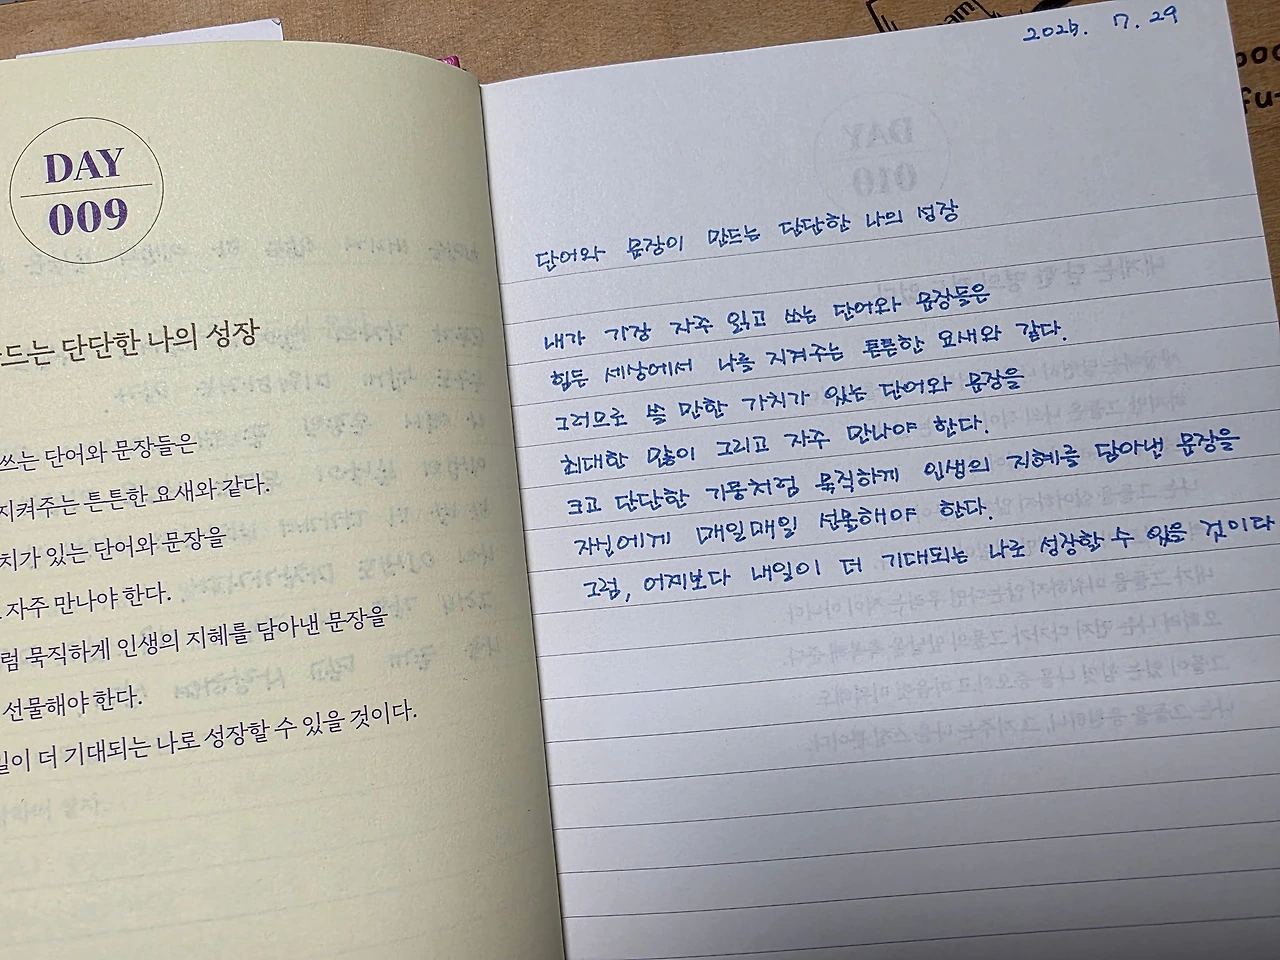 DAY
009
드는 단단한 나의 성장
쓰는 단어와 문장들은
지켜주는 튼튼한 요새와 같다.
치가 있는 단어와 문장을
자주 만나야 한다.
럼 묵직하게 인생의 지혜를 담아낸 문장을
선물해야 한다.
일이 더 기대되는 나로 성장할 수 있을 것이다.
2025. 7. 29
단어와 문장이 만드는 단단한 나의 성장
내가 가장 자주 읽고 쓰는 단어와 문장들은
힘든 세상에서 나를 지켜주는 튼튼한 요새와 같다.
그러므로 쓸 만한 가치가 있는 단어와 문장을
최대한 많이 그리고 자주 만나야 한다.
크고 단단한 기둥처럼 묵직하게 인생의 지혜를 담아낸 문장을
자신에게 매일매일 선물해야 한다.
그럼, 어제보다 내일이 더 기대되는 나로 성장할 수 있을 것이다
am
boo
fu-